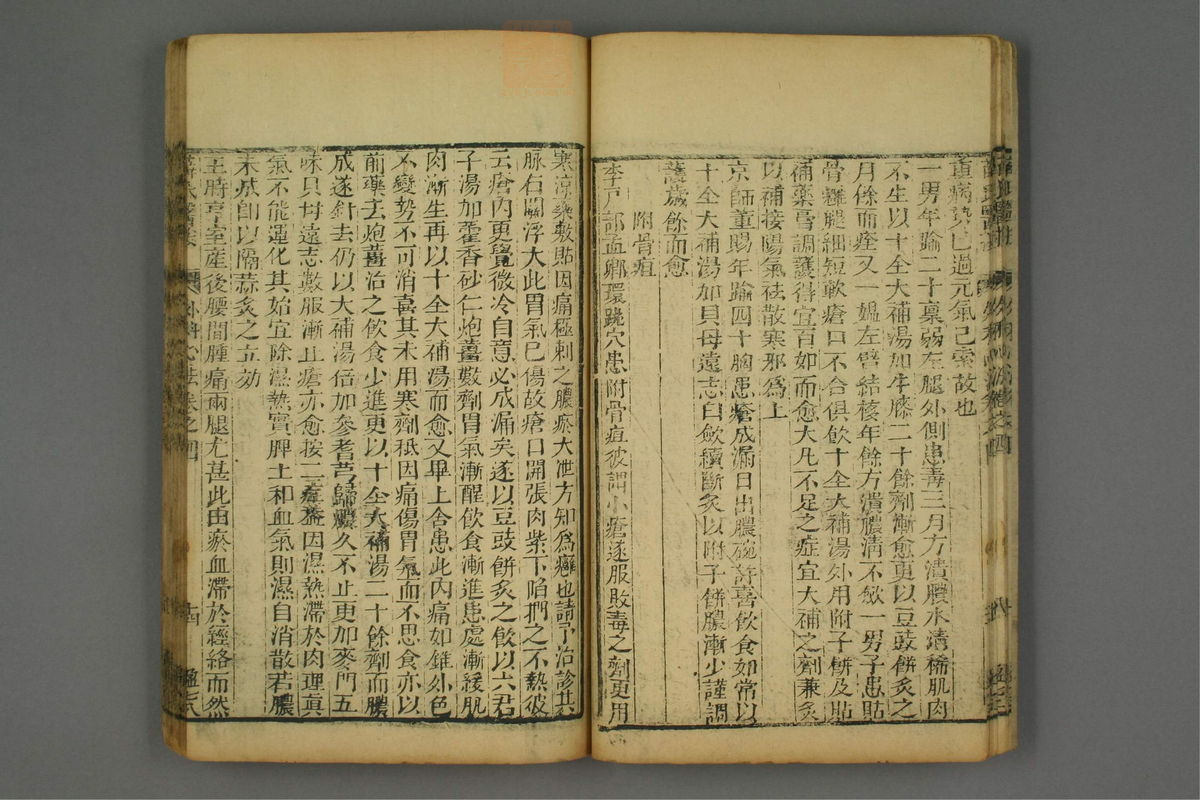 重病勢已過元氣已索故也
一男年踰二十稟弱左腿外側患毒三月方潰膿水清稀肌肉
不生以十全大補湯加牛膝二十餘劑漸愈更以豆豉餅灸之
月餘而痊又一媼左臂結核年餘方潰膿清不斂一男子患貼
骨癰腿細短軟瘡口不合俱飲十全大補湯外用附子餅及貼
補藥膏調護得宜百如而愈大凡不足之症宜大補之劑兼灸
以補接陽氣祛散寒邪爲上
京師董賜年踰四十胸患瘡成漏日出膿碗許喜飲食如常以
十全大補湯加貝母遠志白斂續斷灸以附子餅膿漸少謹調
護歲餘而愈
附骨疽
李戶部孟卿環跳穴患附骨疽彼謂小瘡遂服敗毒之劑更用
寒涼藥敷貼因痛極刺之膿瘀大泄方知爲癰也請予治診其
脉右關浮大此胃氣已傷故瘡口開張肉紫下陷捫之不熱彼
云瘡內更覺微冷自意必成漏矣遂以豆豉餅灸之飲以六君
子湯加藿香砂仁炮薑數劑胃氣漸醒飲食漸進患處漸緩肌
肉漸生再以十全大補湯而愈又畢上舍患此內痛如錐外色
不變勢不可消喜其未用寒劑秪因痛傷胃氣而不思食亦以
前藥去炮薑治之飲食少進更以十全大補湯二十餘劑而膿
成遂針去仍以大補湯倍加參耆芎歸膿久不止更加麥門五
味貝母遠志數服漸止瘡亦愈按二症蓋因濕熱滯於肉理眞
氣不能運化其始宜除濕熱實脾土和血氣則濕自消散若膿
未成卽以隔蒜灸之立効
王時亨室產後腰間腫痛兩腿尤甚此由瘀血滯於經絡而然
外科心法卷之四